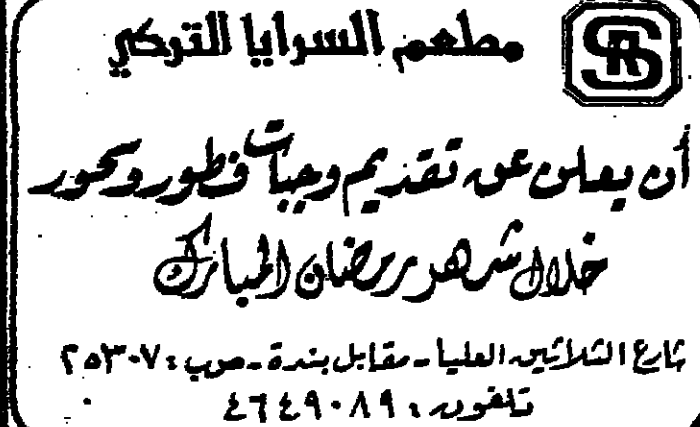 مطعم السرايا التركي
SR
أن يعلن عن تقديم وجبات فطور وسحور
خلال شهر رمضان المبارك
شارع الثلاثين العليا - مقابل بندة - ص.ب: ٢٥٣٠٧
تلفون: ٤٦٤٩٠٨٩